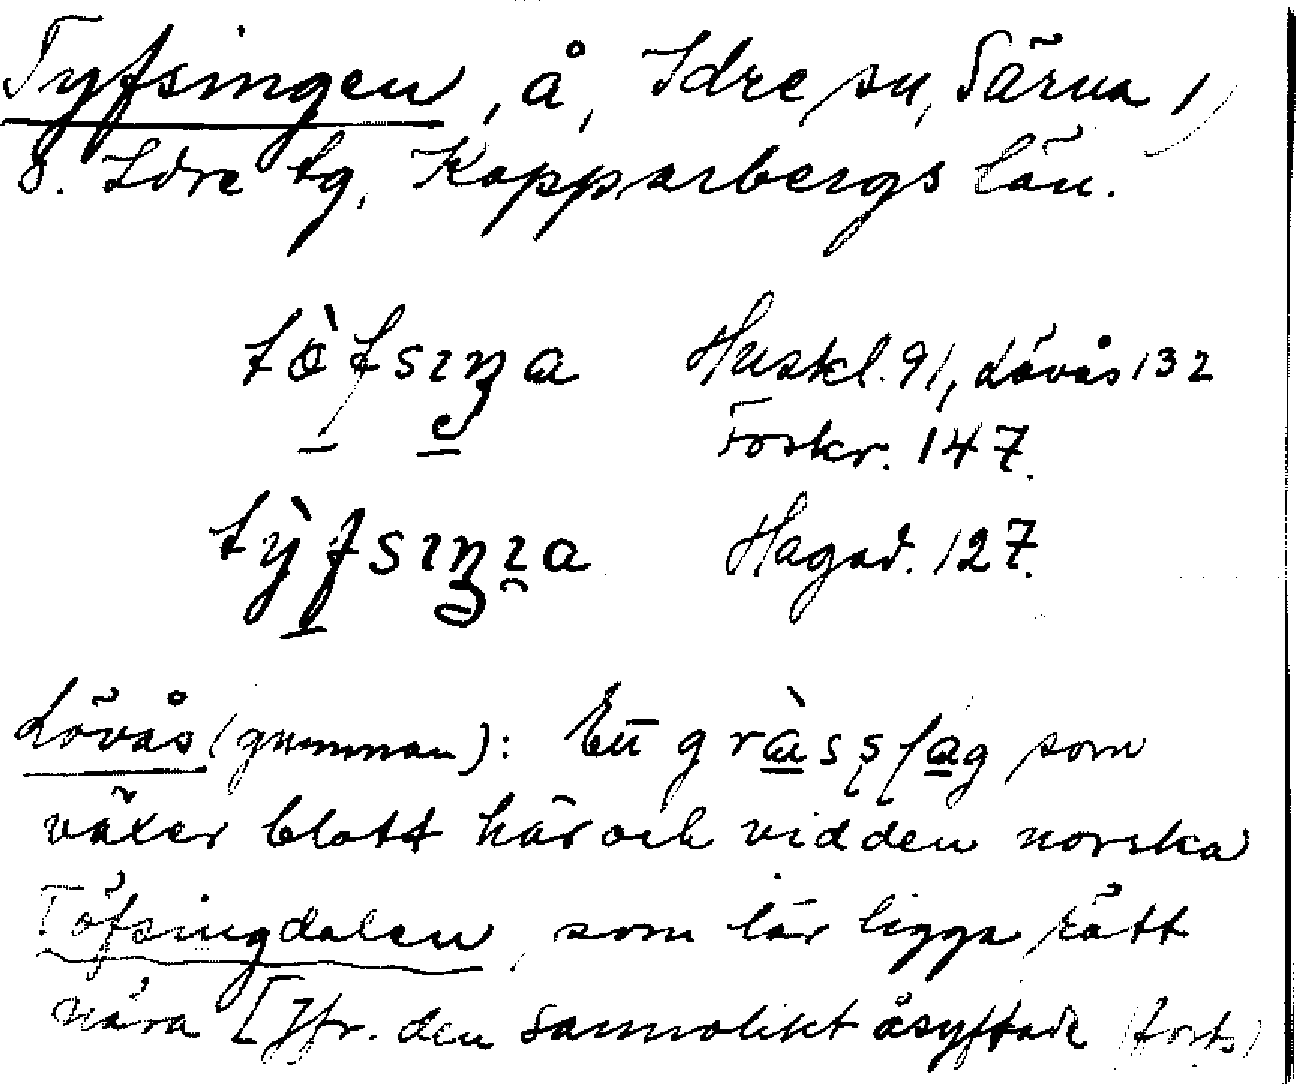 Tyfsingen, å, Idre sn, Särna
ö. Idre tg, Kopparbergs län.
tö̀fsıŋa Huskl. 91, Lövås 132
Foskr. 147.
tỳfsıŋı̯a Hagad. 127.
Lövås (gumman): Ett gràsslag som
växer blott här och vid den norska
Töfsingdalen, som lär ligga rätt
nära [Jfr. den sannolikt åsyftade (forts)